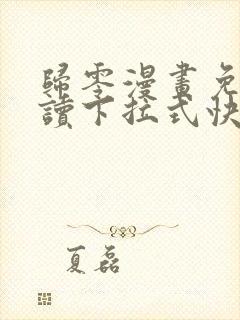 歸零漫畫免
讀下拉式快
夏磊